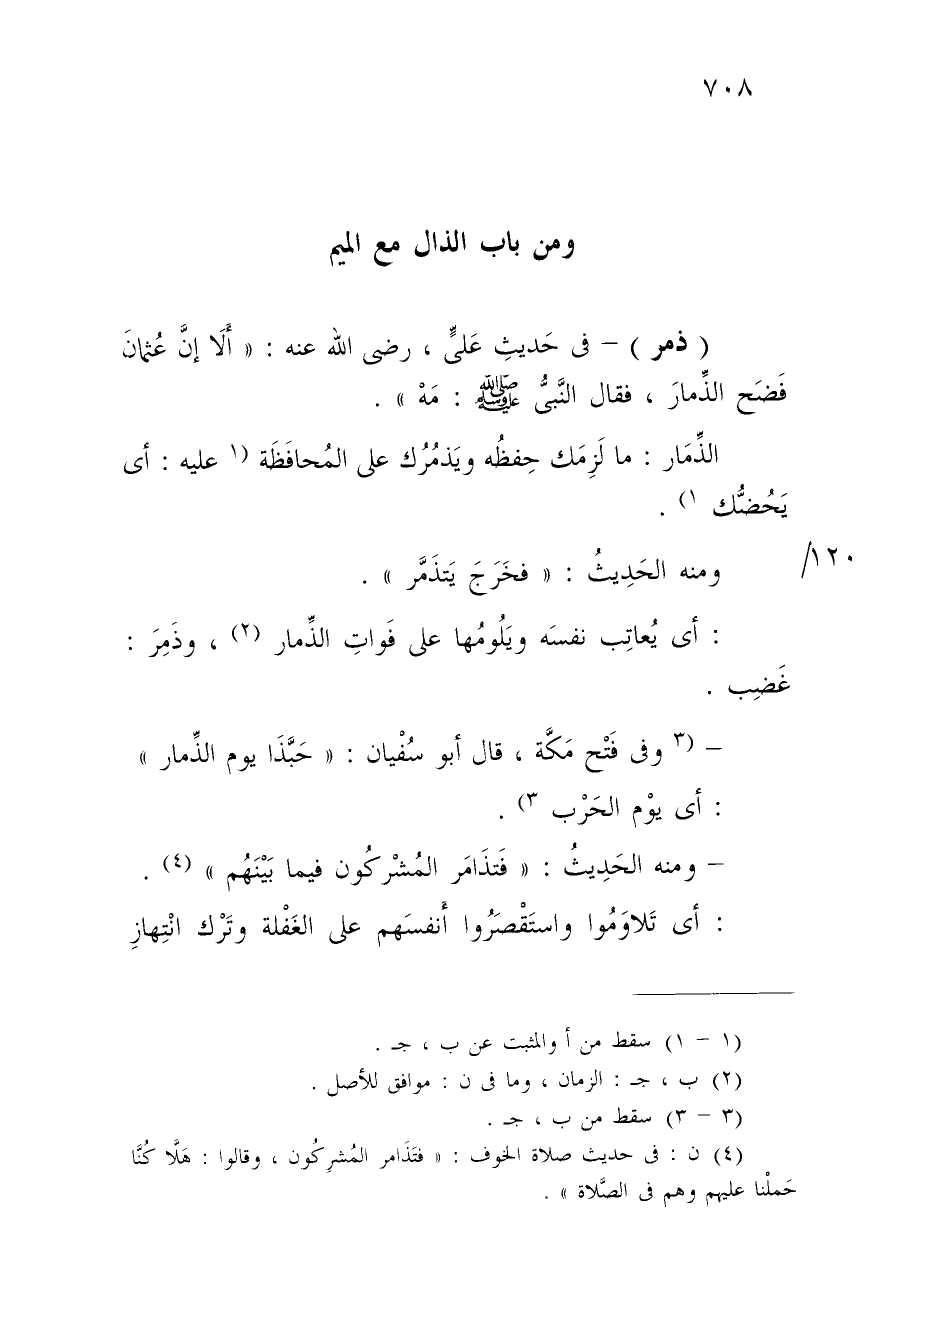 ٧٠٨
ومن باب الذال مع الميم
( ذمر ) – فى حَديثِ عَلىٍّ ، رضى الله عنه : « أَلَا إنَّ عُثمانَ
فَضَح الذِّمارَ ، فقال النَّبىُّ ﷺ : مَهْ » .
الذِّمَار : ما لَزِمَك حِفظُه ويَذمُرُك على المُحافَظَة (١ عليه : أى
يَحُضُّك ١) .
ومنه الحَدِيثُ : « فخَرَجَ يَتذَمَّر » .
/١٢٠
: أى يُعاتِب نفسَه ويَلُومُها على فَواتِ الذِّمار (٢) ، وذَمِرَ :
غَضِب .
– (٣ وفى فَتْح مَكَّة ، قال أبو سُفْيان : « حَبَّذَا يوم الذِّمار »
: أى يوْم الحَرْب ٣) .
– ومنه الحَدِيثُ : « فَتذَامَر المُشْركُون فيما بَيْنَهُم » (٤) .
: أى تَلاوَمُوا واستَقْصَرُوا أَنفسَهم على الغَفْلة وتَرْك انْتِهازِ
(١ – ١) سقط من أ والمثبت عن ب ، جـ .
(٢) ب ، جـ : الزمان ، وما فى ن : موافق للأصل .
(٣ – ٣) سقط من ب ، جـ .
(٤) ن : فى حديث صلاة الخوف : « فتَذَامر المُشرِكُون ، وقالوا : هَلَّا كُنَّا
حَملْنا عليهم وهم فى الصَّلاة » .